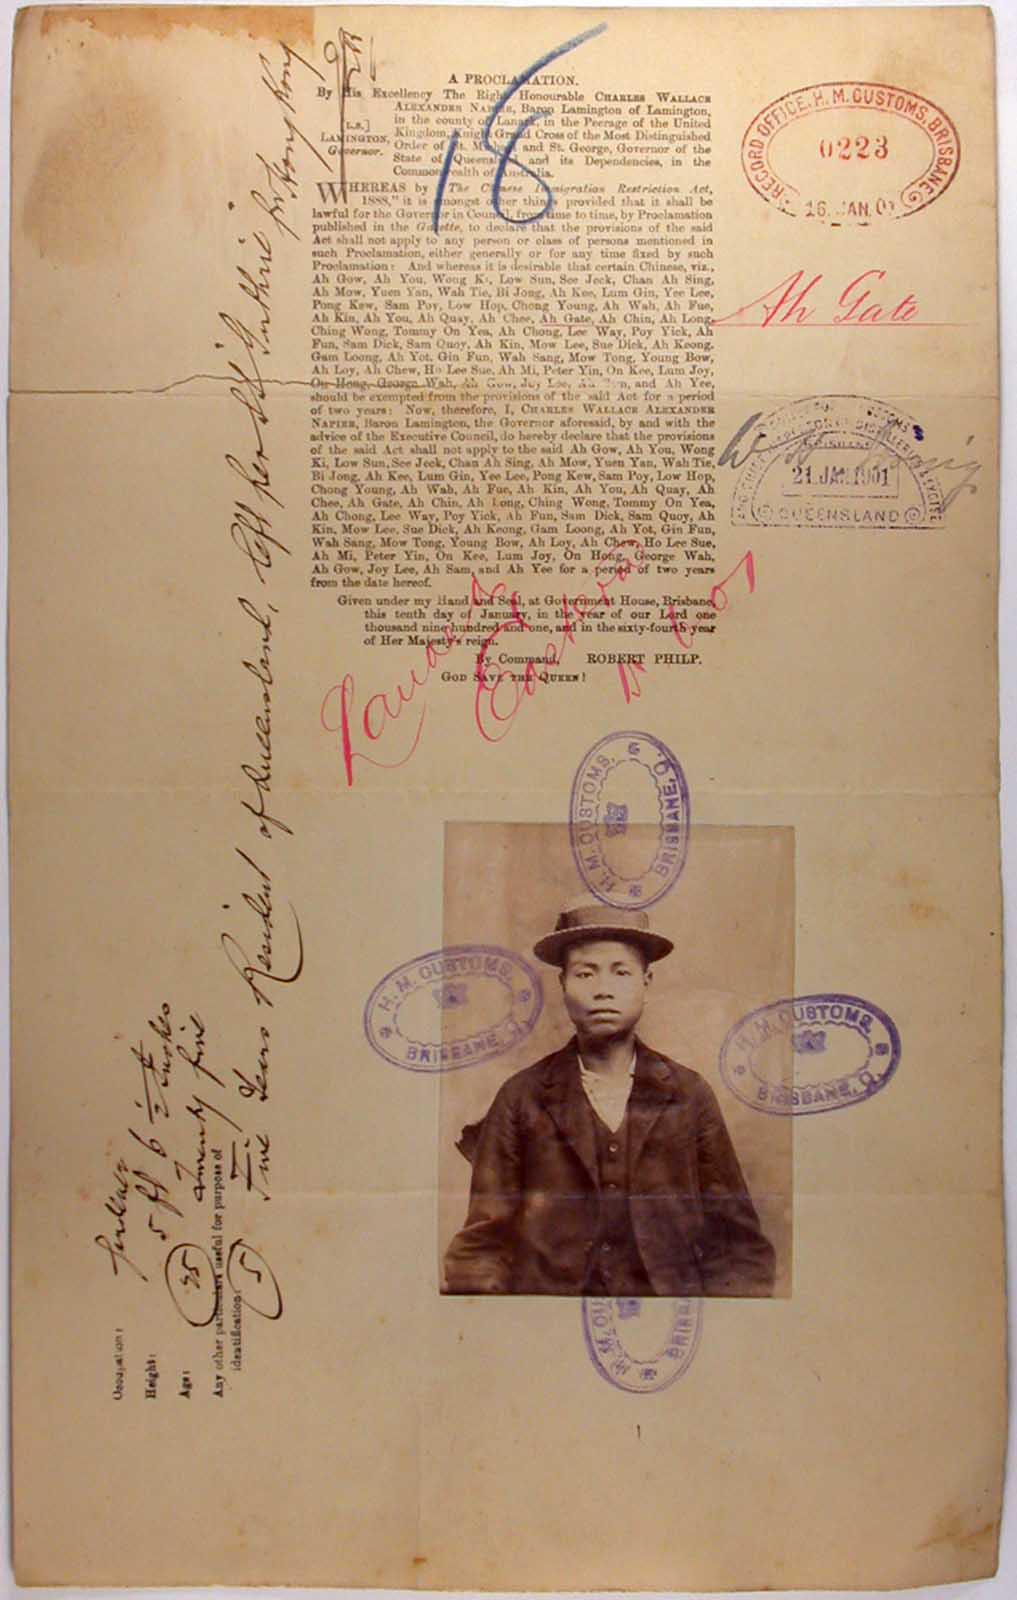 A PROCLAMATION.
By His Excellency The Right Honourable CHARLES WALLACE
ALEXANDER NAPIER, Baron Lamington of Lamington,
in the county of Lanark, in the Peerage of the United
[L.S.]
Kingdom, Knight Grand Cross of the Most Distinguished
LAMINGTON,
Order of St. Michael and St. George, Governor of the
Governor.
State of Queensland and its Dependencies, in the
Commonwealth of Australia.
WHEREAS by "The Chinese Immigration Restriction Act,
1888," it is amongst other things provided that it shall be
lawful for the Governor in Council, from time to time, by Proclamation
published in the Gazette, to declare that the provisions of the said
Act shall not apply to any person or class of persons mentioned in
such Proclamation, either generally or for any time fixed by such
Proclamation: And whereas it is desirable that certain Chinese, viz.,
Ah Gow, Ah You, Wong Ki, Low Sun, See Jeck, Chan Ah Sing,
Ah Mow, Yuen Yan, Wah Tie, Bi Jong, Ah Kee, Lum Gin, Yee Lee,
Pong Kew, Sam Poy, Low Hop, Chong Young, Ah Wah, Ah Fue,
Ah Kin, Ah You, Ah Quay, Ah Chee, Ah Gate, Ah Chin, Ah Long,
Ching Wong, Tommy On Yea, Ah Chong, Lee Way, Poy Yick, Ah
Fun, Sam Dick, Sam Quoy, Ah Kin, Mow Lee, Sue Dick, Ah Keong,
Gam Loong, Ah Yot, Gin Fun, Wah Sang, Mow Tong, Young Bow,
Ah Loy, Ah Chew, Ho Lee Sue, Ah Mi, Peter Yin, On Kee, Lum Joy,
On Hong, George Wah, Ah Gow, Joy Lee, Ah Sam, and Ah Yee,
should be exempted from the provisions of the said Act for a period
of two years: Now, therefore, I, CHARLES WALLACE ALEXANDER
NAPIER, Baron Lamington, the Governor aforesaid, by and with the
advice of the Executive Council, do hereby declare that the provisions
of the said Act shall not apply to the said Ah Gow, Ah You, Wong
Ki, Low Sun, See Jeck, Chan Ah Sing, Ah Mow, Yuen Yan, Wah Tie,
Bi Jong, Ah Kee, Lum Gin, Yee Lee, Pong Kew, Sam Poy, Low Hop,
Chong Young, Ah Wah, Ah Fue, Ah Kin, Ah You, Ah Quay, Ah
Chee, Ah Gate, Ah Chin, Ah Long, Ching Wong, Tommy On Yea,
Ah Chong, Lee Way, Poy Yick, Ah Fun, Sam Dick, Sam Quoy, Ah
Kin, Mow Lee, Sue Dick, Ah Keong, Gam Loong, Ah Yot, Gin Fun,
Wah Sang, Mow Tong, Young Bow, Ah Loy, Ah Chew, Ho Lee Sue,
Ah Mi, Peter Yin, On Kee, Lum Joy, On Hong, George Wah,
Ah Gow, Joy Lee, Ah Sam, and Ah Yee for a period of two years
from the date hereof.
Given under my Hand and Seal, at Government House, Brisbane,
this tenth day of January, in the year of our Lord one
thousand nine hundred and one, and in the sixty-fourth year
of Her Majesty's reign.
By Command, ROBERT PHILP.
GOD SAVE THE QUEEN!
18
RECORD OFFICE, H. M. CUSTOMS, BRISBANE
0223
16. JAN. 01
Ah Gate
BRISBANE
21 JAN. 1901
QUEENSLAND
Eastern
H. M. CUSTOMS,
BRISBANE, Q.
H. M. CUSTOMS,
BRISBANE, Q.
H. M. CUSTOMS,
BRISBANE, Q.
Occupation:
Height: 5 ft 6 ½ inches
Age: 25 twenty five
Any other particulars useful for purpose of
identification: 5 Five Years Resident of Queensland, left per SS "Guthrie" for Hong Kong